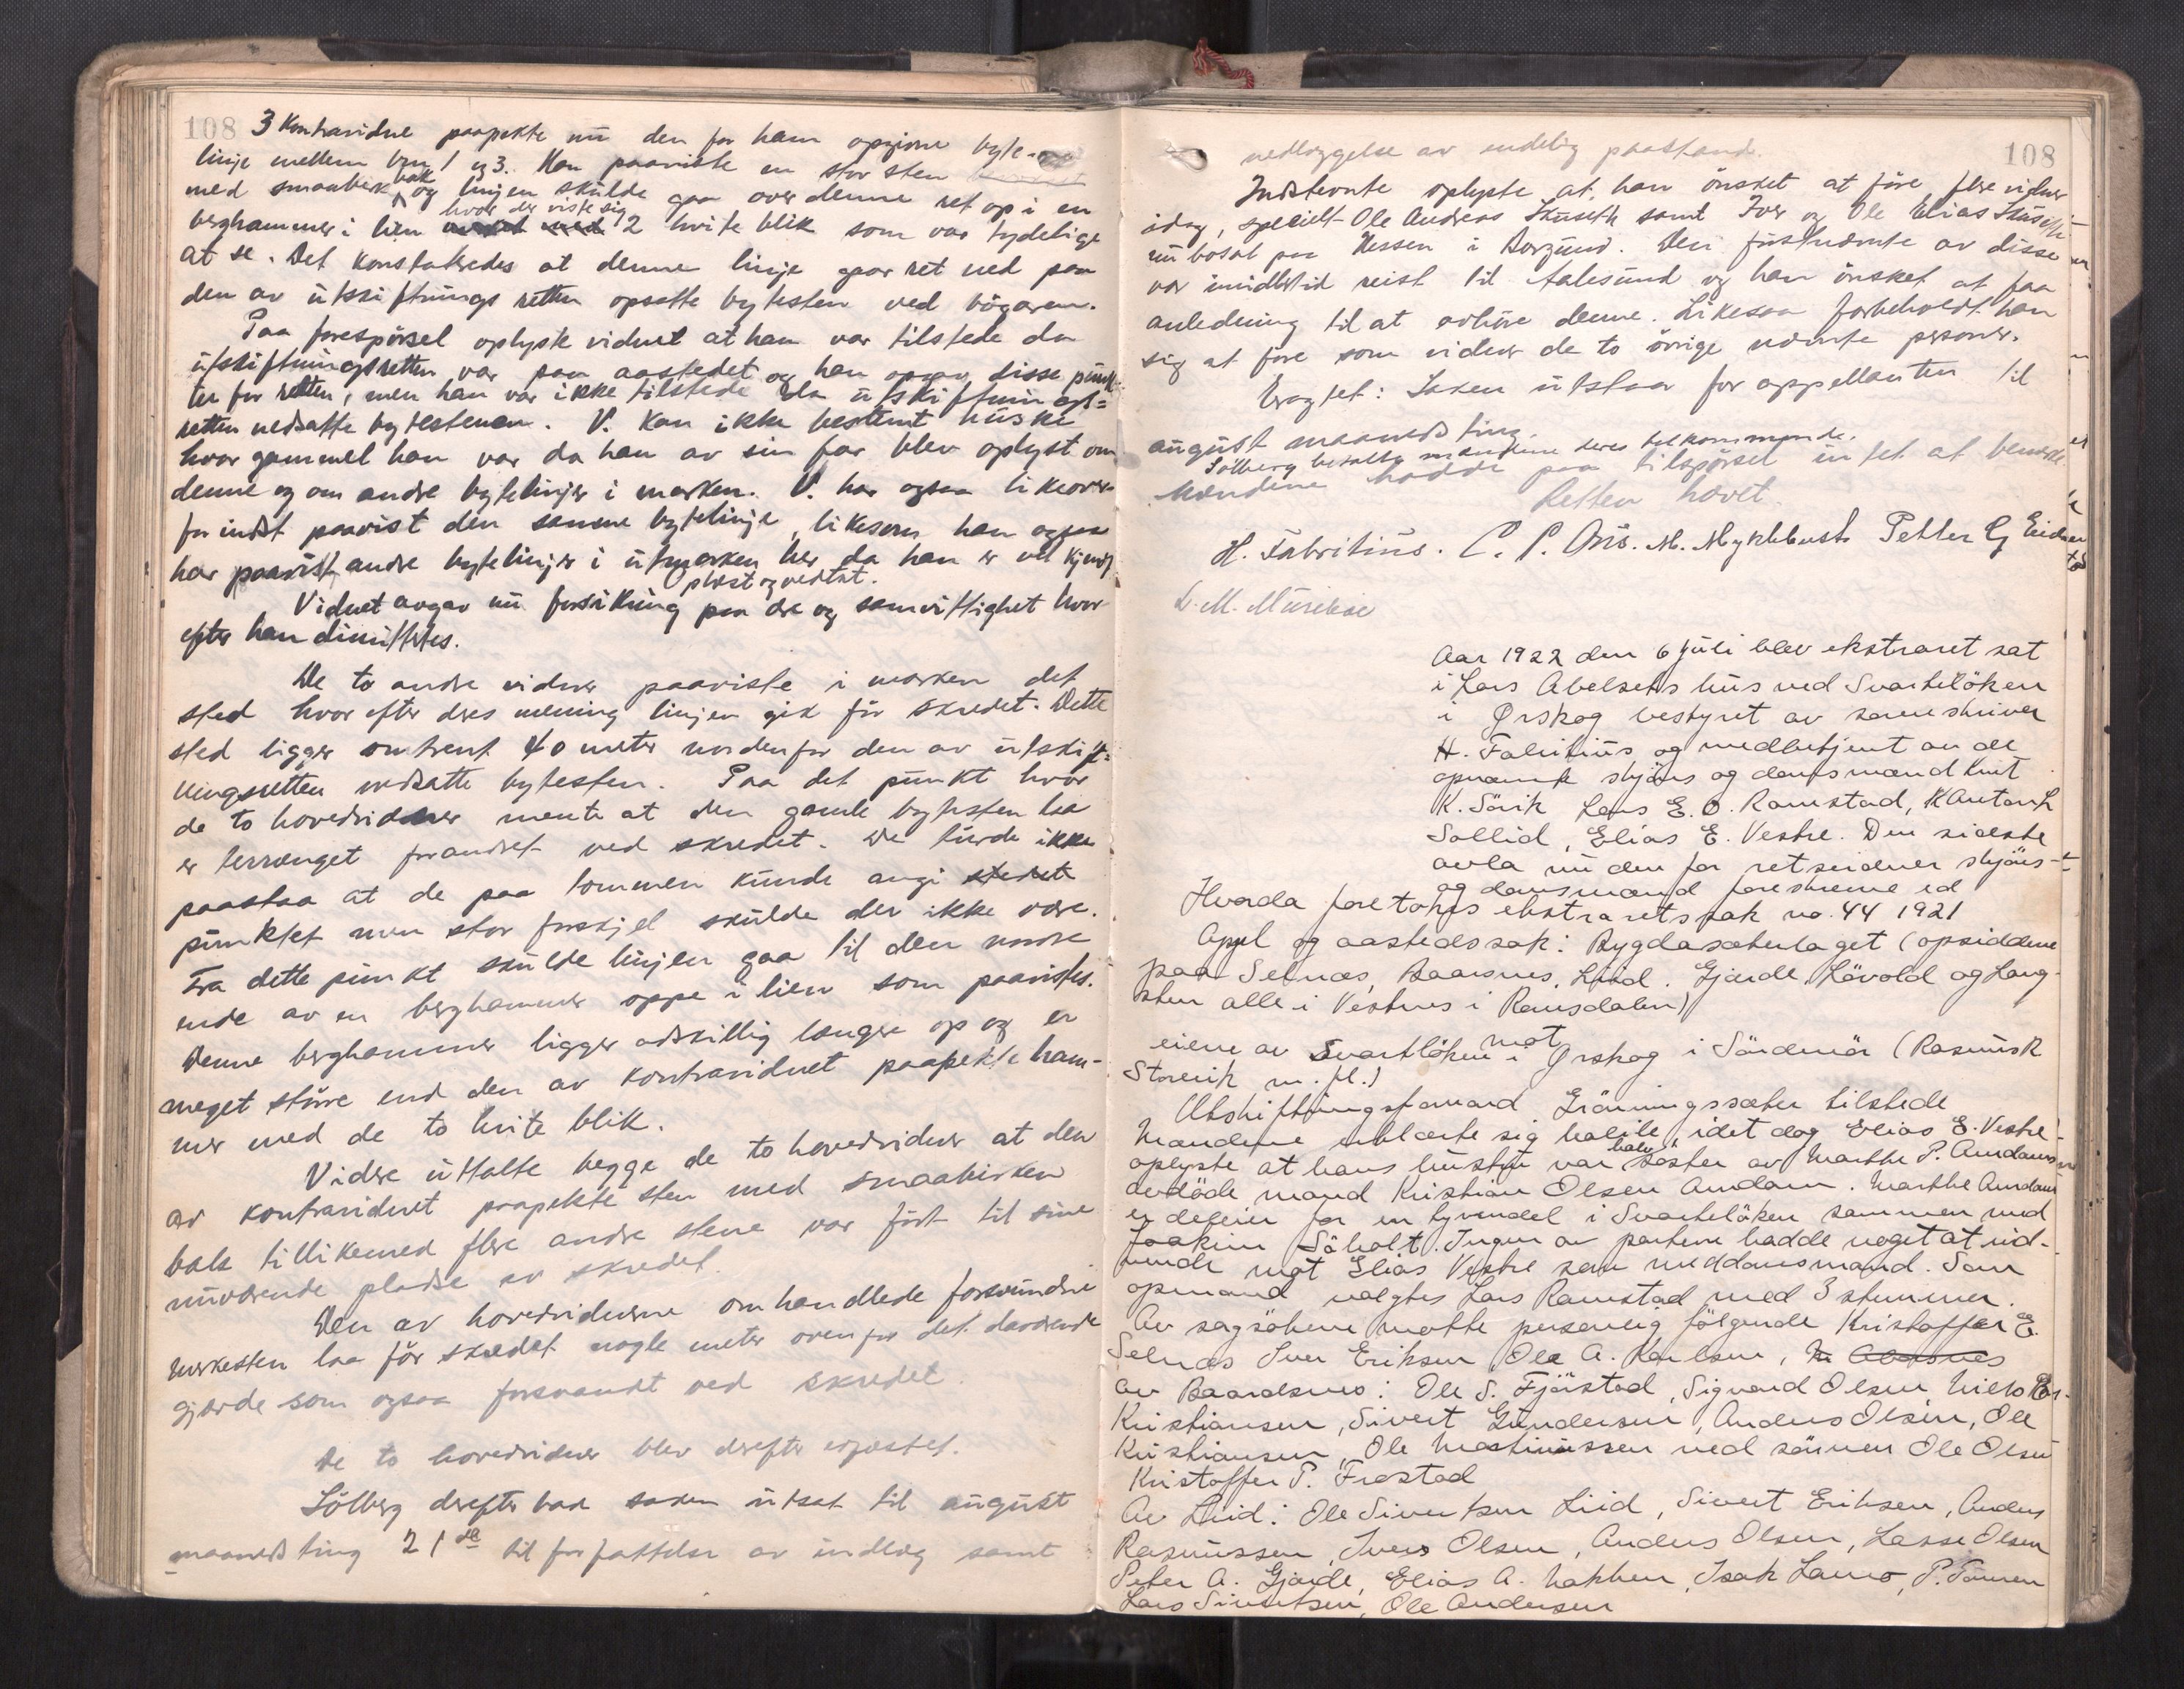 108 3 Kontravidne paapekte nu den for ham opgivne bytes-
linje mellem bnr 1 og 3. Han paaviste en stor sten
med smaabirk bak og linjen skulde gaa over denne ret op i en
berghammer i lien hvor der viste sig 2 hvite blik som var tydelige
at se. Det konstateredes at denne linje gaar ret ned paa
den av utskiftnings retten opsatte bytesten ved
Paa forespörsel oplyste vidnet at han var tilstede da
utskiftningsretten var paa aastedet og han opgav disse punk
ter for retten, men han var ikke tilstede da utskiftnings-
retten nedsatte bytestenen. V. kan ikke bestemt huske
hvor gammel han var da han av sin far blev oplyst om
denne og om andre bytelinjer i marken. V. har ogsaa likeover-
for indst paavist den samme bytelinje, likesom han ogsaa
har paavist andre bytelinjer i utmarken her da han er vel kjendt
oplæst og vedtat.
Vidnet avgav nu forsikring paa ære og samvittighet hvor-
efter han dimitteres.
De to andre vidner paaviste i marken det
sted hvor efter deres mening linjen gik för skredet. Dette
sted ligger omtrent 40 meter nordenfor den av utskift-
ningsretten nedsatte bytesten. Paa det punkt hvor
de to hovedvidner mente at den gamle bytesten laa
er terrænget forandret ved skredet. De turde ikke
paastaa at de paa tommen kunde angi stedet
punktet men stor forskjel skulde der ikke være.
Fra dette punkt skulde linjen gaa til den nordre
ende av en berghammer oppe i lien som paavistes.
Denne berghammer ligger adskillig længere op og er
meget större end den av kontravidnet paapekte ham-
mer med de to hvite blik.
Videre uttalte begge de to hovedvidner at den
av kontravidnet paapekte sten med smaabirken
bak tillikemed flere andre stene var fört til sine
nuværende pladse av skredet.
Den av hovedvidnerne omhandlede forsvundne
merkesten laa för skredet nogle meter ovenfor det daværende
gjærde som ogsaa forsvandt ved skredet.
De to hovedvidner blev derefter
Sölberg derefter bad saken utsat til august
maanedsting 21de til forfattelse av indlæg samt
108
nedlæggelse av endelig paastand.
Indstevnte oplyste at han önsket at före flere vidner
idag, specielt Ole Andreas Skuseth samt Iver og Ole Elias Skuseth
nu bosat paa Hessen i Borgund. Den förstnævnte av disse
var imidlertid reist til Aalesund og han önsket at faa
anledning til at avhöre denne. Likesaa forbeholdt han
sig at före som vidner de to övrige nævnte personer.
Eragtet: Saken utstaar for appellanten til
august maanedsting.
Sölberg betalte mændene deres tilkommende.
Mændene hadde paa tilspörsel intet at bemerke
Retten hævet.
H. Fabritius. C. P. Aus. M. Myklebust Petter G Eid
L. M. Muribö
Aar 1922 den 6 juli blev ekstraret sat
i Lars Abelsets hus ved Svartelöken
i Ørskog bestyret av sorenskriver
H. Fabritius og medbetjent av de
opnævnte skjöns og domsmænd Knut
K. Sörik Lars E. O. Ramstad, K Antonh
Sollid, Elias E. Vestre. Den sidste
avla nu den for retsvidner skjöns-
og domsmænd foreskrevne ed
Hvorda foretokes ekstraretssak no. 44 1921
Appel og aastedssak: Bygdasæterlaget (opsiddene
paa Selnæs, Baarsnes, Liid, Gjærde, Hövold og Lang-
sten alle i Vestnes i Romsdalen)
mot
eierne av Svartlöken i Ørskog i Söndmör (Rasmus K
Storvik m. fl.)
Utskiftningsformand Grönningssæter tilstede
Mændene erklærte sig habile, idet dog Elias E. Vestre
oplyste at hans hustru var halv söster av Marthe P. Amdams
avdöde mand Kristian Olsen Amdam. Marthe Amdam
er deleier for en tyvendel i Svartelöken sammen med
Joakim Söholt. Ingen av parterne hadde noget at ind-
vende mot Elias Vestre som meddomsmand. Som
opmand valgtes Lars Ramstad med 3 stemmer.
Av sagsökerne mötte personlig fölgende Kristoffer E.
Selnæs Iver Eriksen, Ole A. Karlsen,
av Baardsnes: Ole S. Fjörstad, Sigvard Olsen, Nils
Kristiansen, Sivert Gundersen, Anders Olsen, Ole
Kristiansen, Ole Martinussen ved sönnen Ole Olsen
Kristoffer P. Frostad
Av Liid: Ole Sivertsen Liid, Sivert Eriksen, Anders
Rasmussen, Iver Olsen, Anders Olsen, Lasse Olsen
Peter A. Gjærde, Elias A. Nakken, Isak
Lars Sivertsen, Ole Andersen